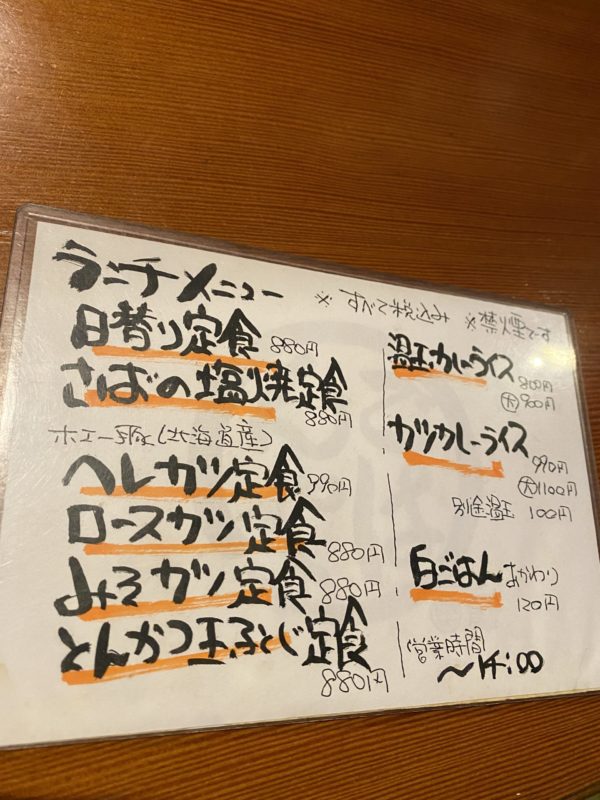 ランチメニュー
※すべて税込み ※禁煙です
日替り定食 880円
さばの塩焼定食
880円
ホエー豚(北海道産)
ヘレカツ定食 990円
ロースカツ定食
880円
みそカツ定食 880円
とんかつ玉子とじ定食
880円
温玉カレーライス
800円
大900円
カツカレーライス
990円
大1100円
別途温玉 100円
白ごはん おかわり
120円
営業時間